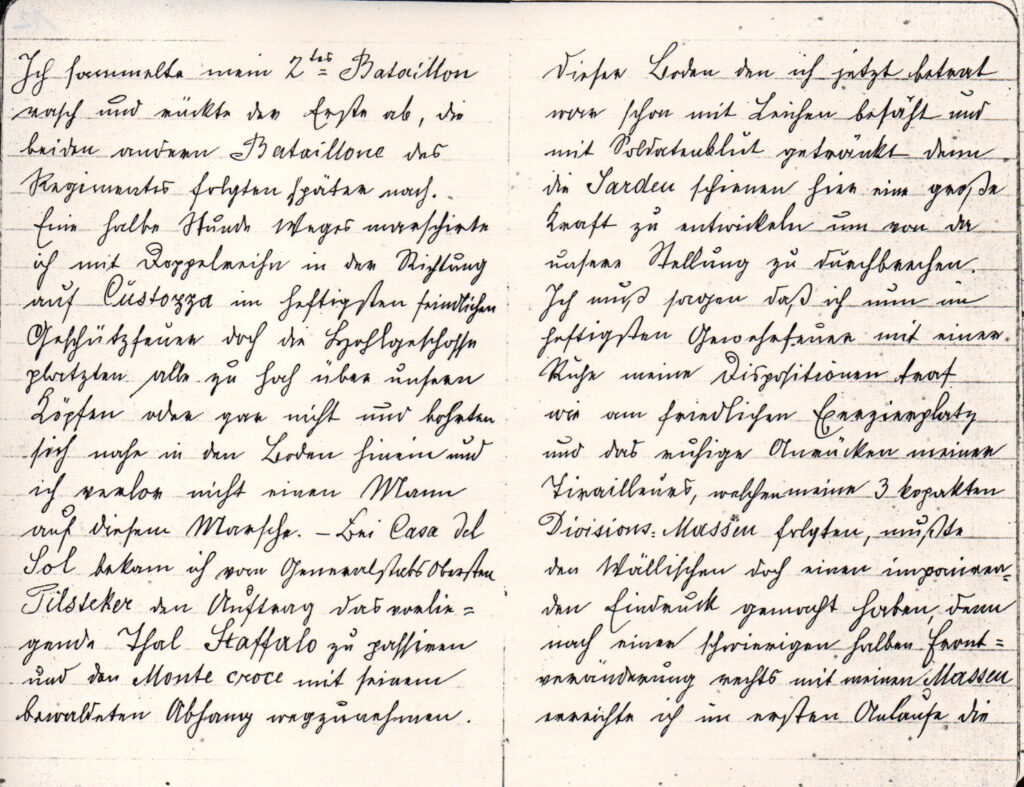 Ich sammelte mein 2tes Bataillon
rasch und rückte der Erste ab, die
beiden andern Bataillone des
Regimentes folgten später nach.
Eine halbe Stunde Weges marschirte
ich mit Doppelreihn in der Richtung
auf Custozza im heftigsten feindlichen
Geschützfeuer doch die Hohlgeschosse
platzten alle zu hoch über unsern
Köpfen oder gar nicht und bohrten
sich nahe in den Boden hinein und
ich verlor nicht einen Mann
auf diesem Marsche. – Bei Casa del
Sol bekam ich vom Generalstabs Obersten
Pilsteker den Auftrag das vorlie=
gende Thal Staffalo zu passiren
und den Monte croce mit seinem
bewaldeten Abhang wegzunehmen.
Dieser Boden den ich jetzt betrat
war schon mit Leichen besäht und
mit Soldatenblut getränkt denn
die Sarden schienen hier eine große
Kraft zu entwickeln um von da
unsere Stellung zu durchbrechen.
Ich muß sagen daß ich nun im
heftigsten Gewehrfeuer mit einer
Ruhe meine Dispositionen traf
wie am friedlichen Exerzierplatz
und das ruhige Anrücken meiner
Tirailleurs, welchen meine 3 kopakten
Divisions=Massen folgten, mußte
den Wällischen doch einen imponiren-
den Eindruck gemacht haben, denn
nach einer schwierigen halben Front=
veränderung rechts mit meinen Massen
erreichte ich im ersten Anlaufe die